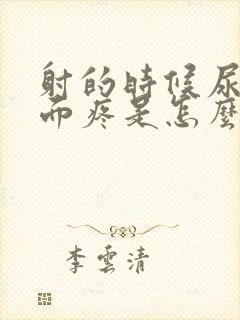 射的时候尿
而疼是怎麼
李雲清